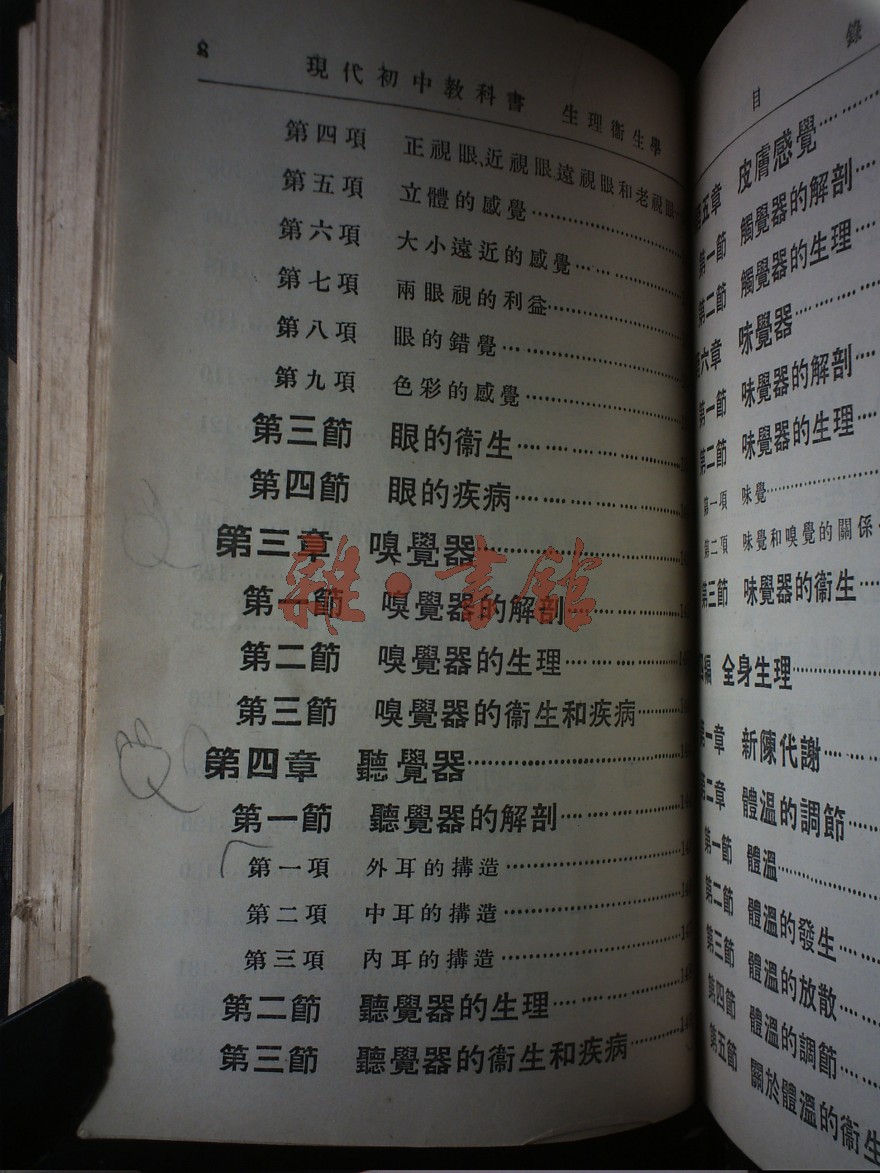 8 現代初中教科書 生理衞生學
第四項 正視眼,近視眼,遠視眼和老視眼
第五項 立體的感覺
第六項 大小遠近的感覺
第七項 兩眼視的利益
第八項 眼的錯覺
第九項 色彩的感覺
第三節 眼的衞生
第四節 眼的疾病
第三章 嗅覺器
第一節 嗅覺器的解剖
第二節 嗅覺器的生理
第三節 嗅覺器的衞生和疾病
第四章 聽覺器
第一節 聽覺器的解剖
第一項 外耳的搆造
第二項 中耳的搆造
第三項 內耳的搆造
第二節 聽覺器的生理
第三節 聽覺器的衞生和疾病
雜·書館
目 錄
第五章 皮膚感覺
第一節 觸覺器的解剖
第二節 觸覺器的生理
第六章 味覺器
第一節 味覺器的解剖
第二節 味覺器的生理
第一項 味覺
第二項 味覺和嗅覺的關係
第三節 味覺器的衞生
編 全身生理
第一章 新陳代謝
第二章 體溫的調節
第一節 體溫
第二節 體溫的發生
第三節 體溫的放散
第四節 體溫的調節
第五節 關於體溫的衞生